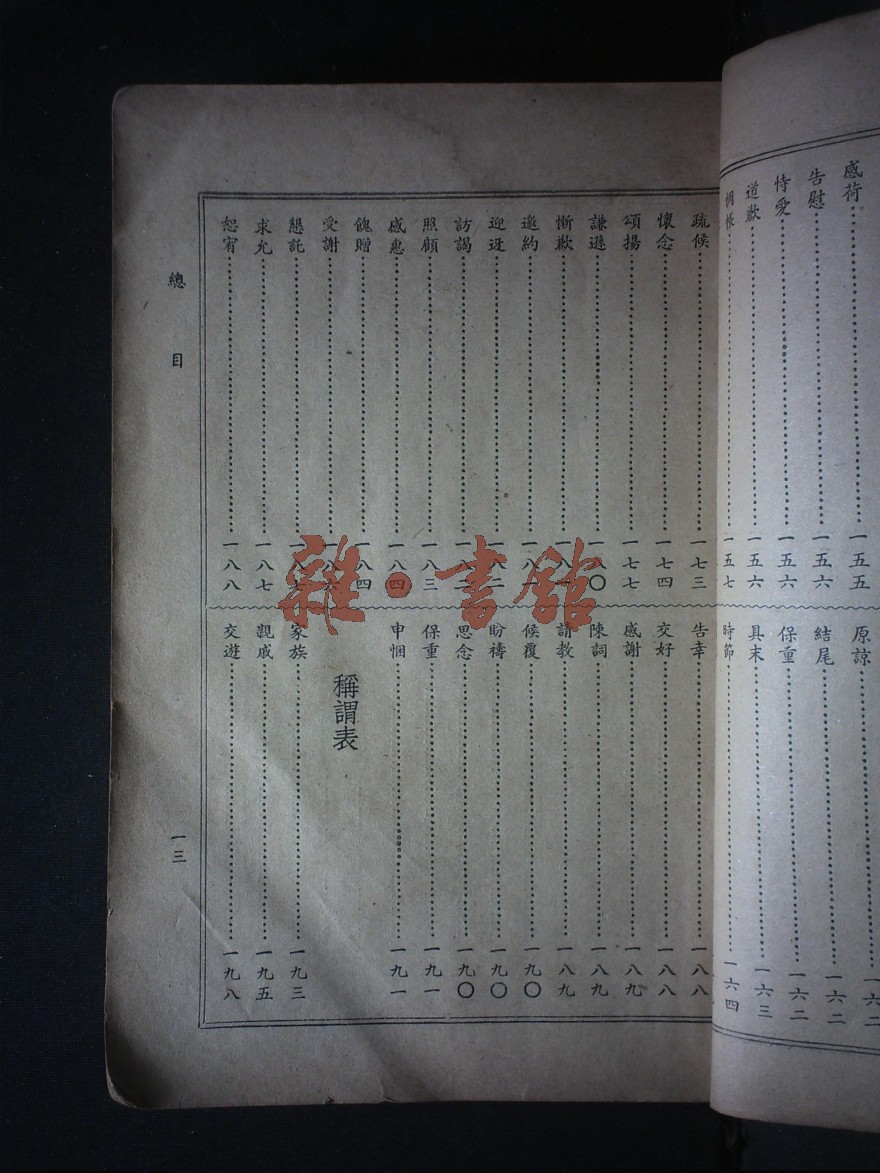 感荷……一五五
告慰……一五六
恃愛……一五六
道歉……一五六
惆悵……一五七
原諒……一六二
結尾……一六二
保重……一六二
具末……一六三
時節……一六四
疏候……一七三
懷念……一七四
頌揚……一七七
謙遜……一八〇
慚歉……
邀約……
迎迓……
訪謁……
照顧……一八三
感惠……一八四
餽贈……一八四
受謝……一八六
懇託……一八七
求允……一八七
恕宥……一八八
告幸……一八八
交好……一八八
感謝……一八九
陳詞……一八九
請教……一八九
候覆……一九〇
盼禱……一九〇
思念……一九〇
保重……一九一
申悃……一九一
稱謂表
家族……一九三
親戚……一九五
交遊……一九八
總目
一三
雜·書館